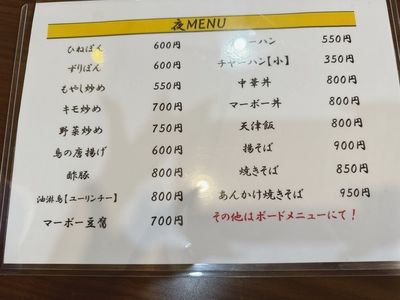 夜MENU
ひねぽん 600円
ずりぽん 600円
もやし炒め 550円
キモ炒め 700円
野菜炒め 750円
鳥の唐揚げ 600円
酢豚 800円
油淋鳥【ユーリンチー】 800円
マーボー豆腐 700円
ーハン 550円
チャーハン【小】 350円
中華丼 800円
マーボー丼 800円
天津飯 800円
揚そば 900円
焼きそば 850円
あんかけ焼きそば 950円
その他はボードメニューにて！